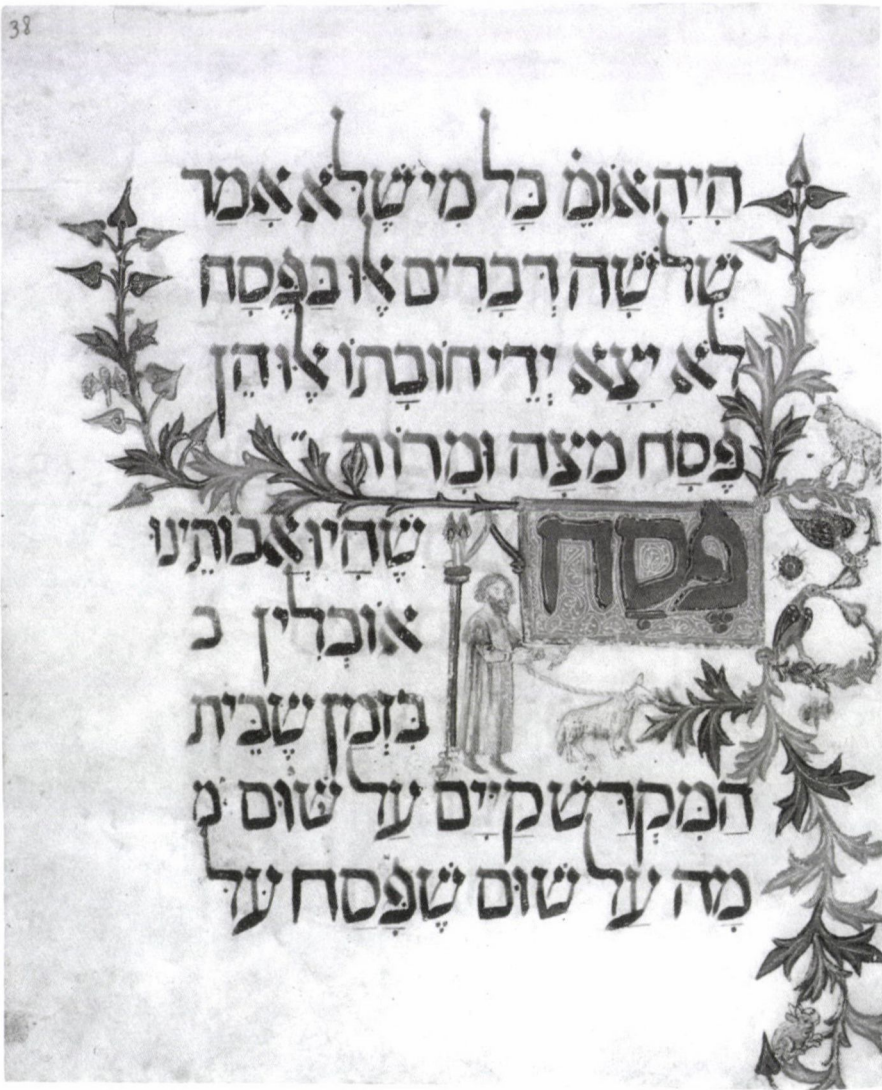 38
היה אומ כל מי שלא אמר
שלשה דברים אלו בפסח
לא יצא ידי חובתו אלו הן
פסח מצה ומרור
פסח שהיו אבותינו
אוכלין ב
בזמן שבית
המקדש קיים על שום מ
מה על שום שפסח על